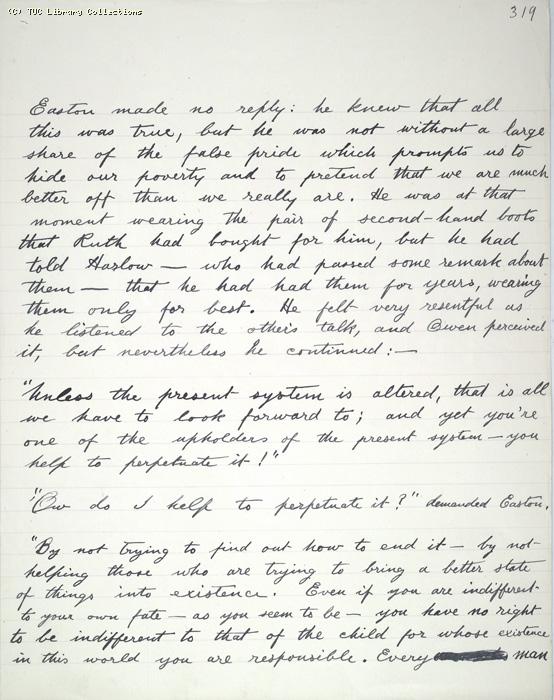 (C) TUC Library Collections
319
Easton made no reply: he knew that all
this was true, but he was not without a large
share of the false pride which prompts us to
hide our poverty and to pretend that we are much
better off than we really are. He was at that
moment wearing the pair of second-hand boots
that Ruth had bought for him, but he had
told Harlow — who had passed some remark about
them — that he had had them for years, wearing
them only for best. He felt very resentful as
he listened to the other's talk, and Owen perceived
it, but nevertheless he continued:—
"Unless the present system is altered, that is all
we have to look forward to; and yet you're
one of the upholders of the present system — you
help to perpetuate it!"
"'Ow do I help to perpetuate it?" demanded Easton.
"By not trying to find out how to end it — by not
helping those who are trying to bring a better state
of things into existence. Even if you are indifferent
to your own fate — as you seem to be — you have no right
to be indifferent to that of the child for whose existence
in this world you are responsible. Every man